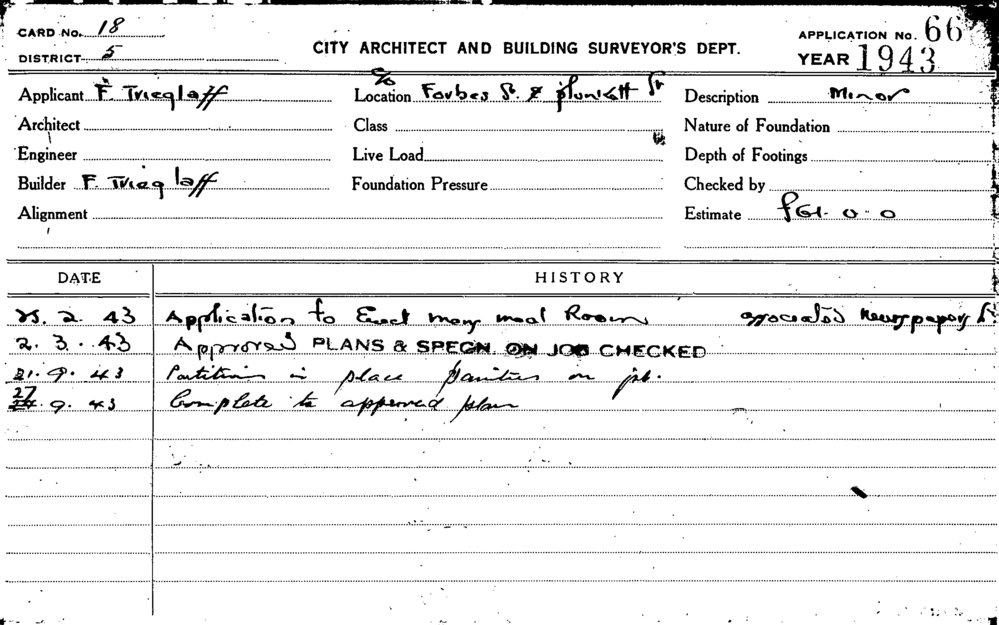 CARD No. 18
DISTRICT 5
CITY ARCHITECT AND BUILDING SURVEYOR'S DEPT.
APPLICATION No. 66
YEAR 1943
Applicant F. Trieglaff
Location c/o Forbes St. & Plunkett St
Description Minor
Architect
Class
Nature of Foundation
Engineer
Live Load
Depth of Footings
Builder F. Trieglaff
Foundation Pressure
Checked by
Alignment
Estimate £61. 0. 0
DATE HISTORY
25. 2. 43 Application to Erect meal Room associated Newspapers
2. 3. 43 Approved PLANS & SPECN. ON JOB CHECKED
21. 9. 43 Partitions in place on job.
27 9. 43 Complete to approved plan